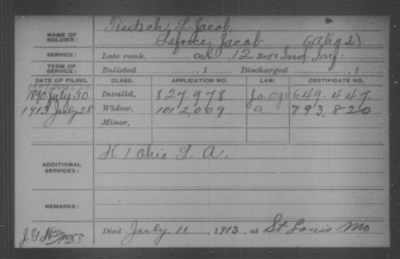 NAME OF SOLDIER: Teutsch, L. Jacob
Laforce, Jacob (alias)
SERVICE: Late rank, Co. K, 12 Reg't Ind. Inf.
TERM OF SERVICE: Enlisted , 1 Discharged , 1
DATE OF FILING. CLASS. APPLICATION NO. LAW. CERTIFICATE NO.
1890 July 30 Invalid, 827,978 649,447
1913 July 28 Widow, 1012,009 a 793,820
Minor,
ADDITIONAL SERVICES: K 1 Ohio L. A.
REMARKS:
Died July 11, 1913, at St Louis Mo